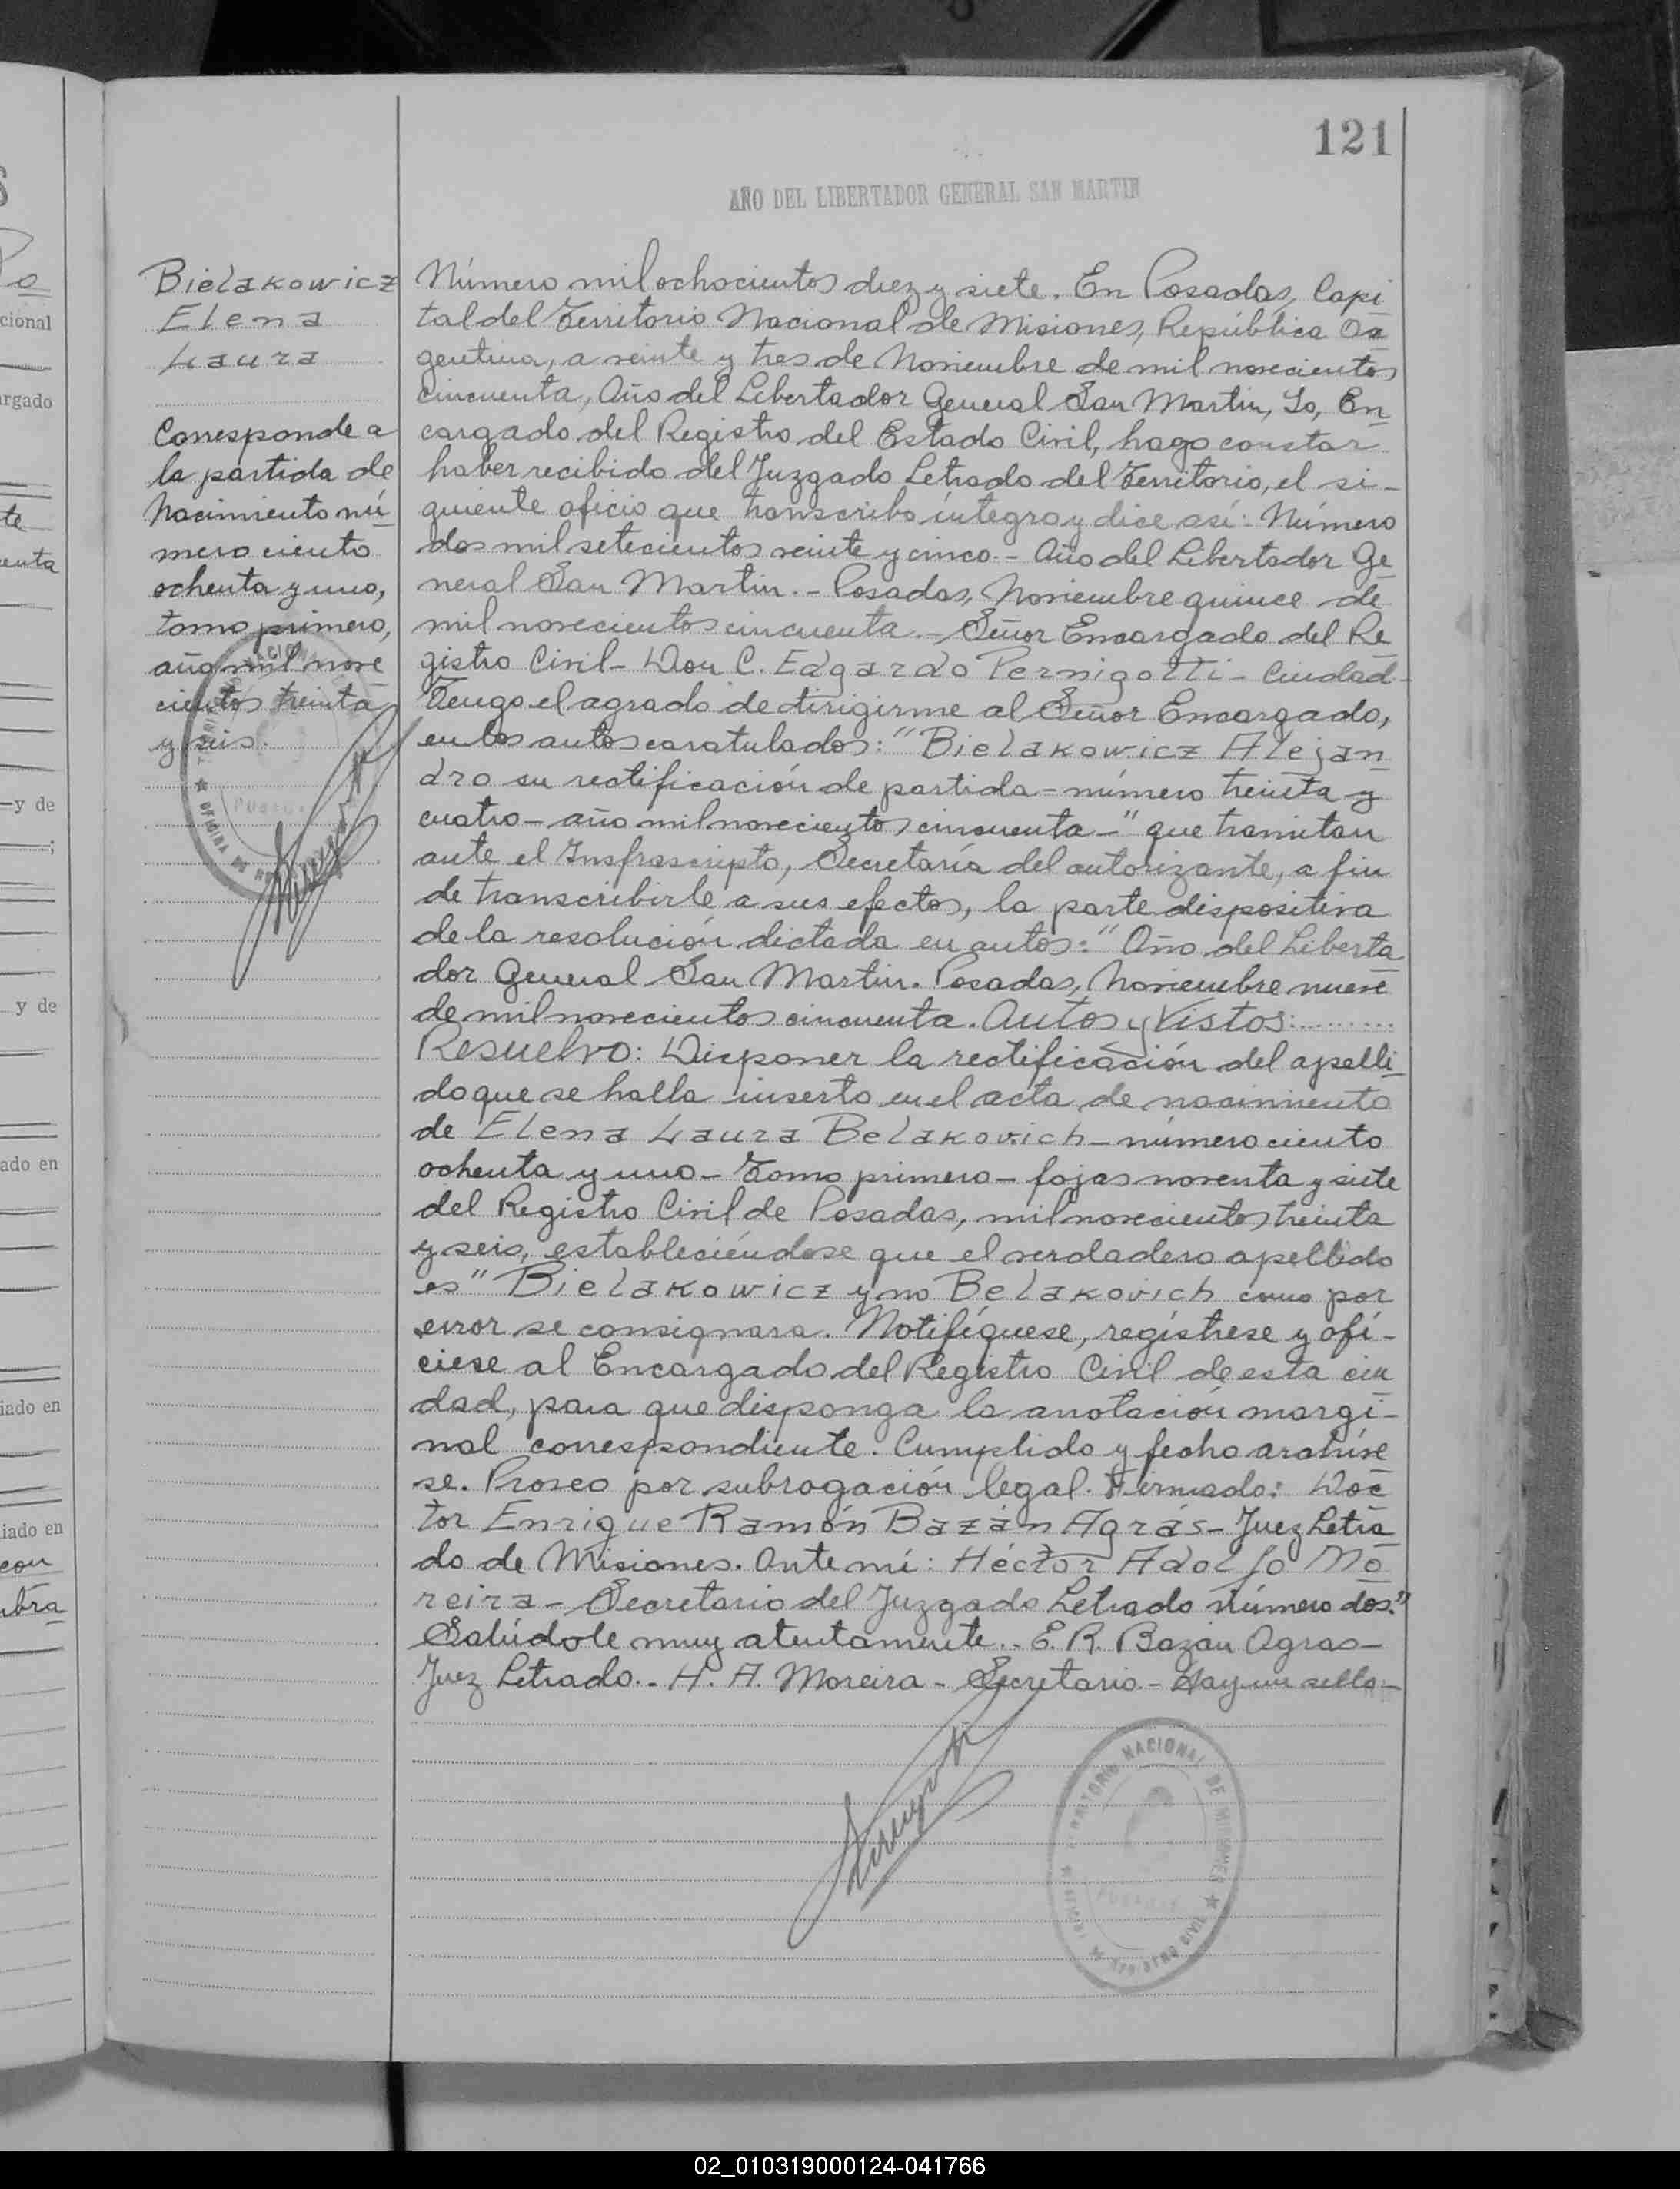 121
AÑO DEL LIBERTADOR GENERAL SAN MARTIN
Bielakowicz
Elena
Laura
Corresponde a
la partida de
Nacimiento nú
mero ciento
ochenta y uno,
tomo primero,
año mil nove
cientos treinta
y seis.
Número mil ochocientos diez y siete. En Posadas, Capi
tal del Territorio Nacional de Misiones, República Ar
gentina, a veinte y tres de Noviembre de mil novecientos
cincuenta, Año del Libertador General San Martin, Yo, En
cargado del Registro del Estado Civil, hago constar
haber recibido del Juzgado Letrado del Territorio, el si-
guiente oficio que transcribo íntegro y dice así: Número
dos mil setecientos veinte y cinco.- Año del Libertador Ge
neral San Martin.- Posadas, Noviembre quince de
mil novecientos cincuenta.- Señor Encargado del Re
gistro Civil- Don C. Edgardo Pernigotti- Ciudad-
Tengo el agrado de dirigirme al Señor Encargado,
en los autos caratulados: "Bielakowicz Alejan
dro su rectificación de partida - número treinta y
cuatro - año mil novecientos cincuenta -" que tramitan
ante el Insfrascripto, Secretaría del autorizante, a fin
de transcribirle a sus efectos, la parte dispositiva
de la resolución dictada en autos: "Año del Liberta
dor General San Martin. Posadas, Noviembre nueve
de mil novecientos cincuenta. Autos y Vistos:.........
Resuelvo: Disponer la rectificación del apelli
do que se halla inserto en el acta de nacimiento
de Elena Laura Belakovich - número ciento
ochenta y uno - Tomo primero - fojas noventa y siete
del Registro Civil de Posadas, mil novecientos treinta
y seis, estableciéndose que el verdadero apellido
es "Bielakowicz y no Belakovich como por
error se consignara. Notifíquese, regístrese y ofí-
ciese al Encargado del Registro Civil de esta ciu
dad, para que disponga la anotación margi-
nal correspondiente. Cumplido y fecho archíve
se. Proveo por subrogación legal. Firmado: Doc
tor Enrique Ramón Bazán Agrás - Juez Letra
do de Misiones. Ante mí: Héctor Adolfo Mo
reira - Secretario del Juzgado Letrado número dos."
Salúdole muy atentamente.- E. R. Bazan Agras-
Juez Letrado.- H. A. Moreira - Secretario - Hay un sello -
NACIONAL DE MISIONES
REGISTRO CIVIL
02_010319000124-041766